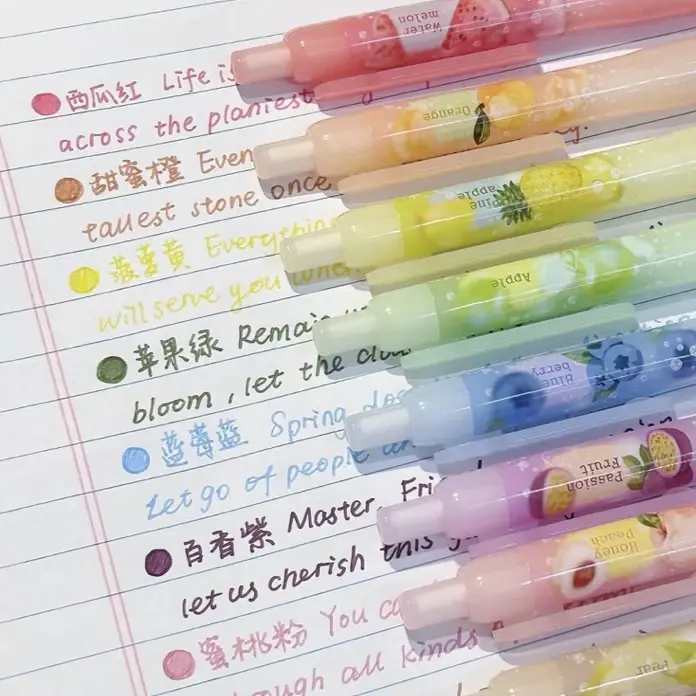 西瓜红 Life is
across the planiest
甜蜜橙 Even
tallest stone once
菠萝黄 Everything
will serve you when
苹果绿 Remain
bloom, let the clou
蓝莓蓝 Spring
Let go of people an
百香紫 Master, Frie
let us cherish this
蜜桃粉 You ca
through all kinds
Water
melon
Orange
Pine
apple
Apple
Blue
berry
Passion
Fruit
Honey
Peach
Pear